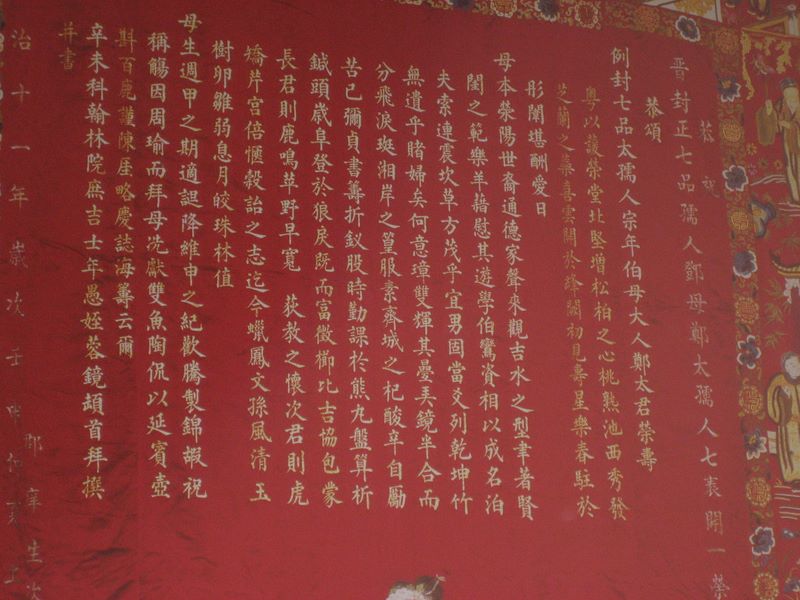 恭祝
晉封正七品孺人鄧母鄭太孺人七袠開一榮
恭頌
例封七品太孺人宗年伯母大人鄭太君榮壽
粵以護榮堂北堅增松柏之心桃熟池西秀發
芝蘭之藥喜雲開於絳闕初見壽星樂春駐於
彤闈堪酬愛日
母本滎陽世裔通德家聲來觀吉水之型聿著賢
閨之範樂羊藉慰其遊學伯鸞資相以成名泊
夫索連震坎草方茂乎宜男固當爻列乾坤竹
無遺乎賭婦矣何意璋雙輝其疊美鏡半合而
分飛淚斑湘岸之篁服素齊城之杞酸辛自勵
苦已彌貞書籌折釵股時勤課於熊丸盤算析
鍼頭歲阜登於狼戾既而富徵櫛比吉協包蒙
長君則鹿鳴草野早寬 荻教之懷次君則虎
矯芹宮倍愜穀詒之志迄今蠟鳳文孫風清玉
樹卵雛弱息月皎珠林值
母生週甲之期適誕降維申之紀歡騰製錦嘏祝
稱觴因周瑜而拜母洗獻雙魚陶侃以延賓壺
斟百鹿謹陳厓略慶誌海籌云爾
辛未科翰林院庶吉士年愚姪蓉鏡頓首拜撰
并書
治十一年歲次壬申仲